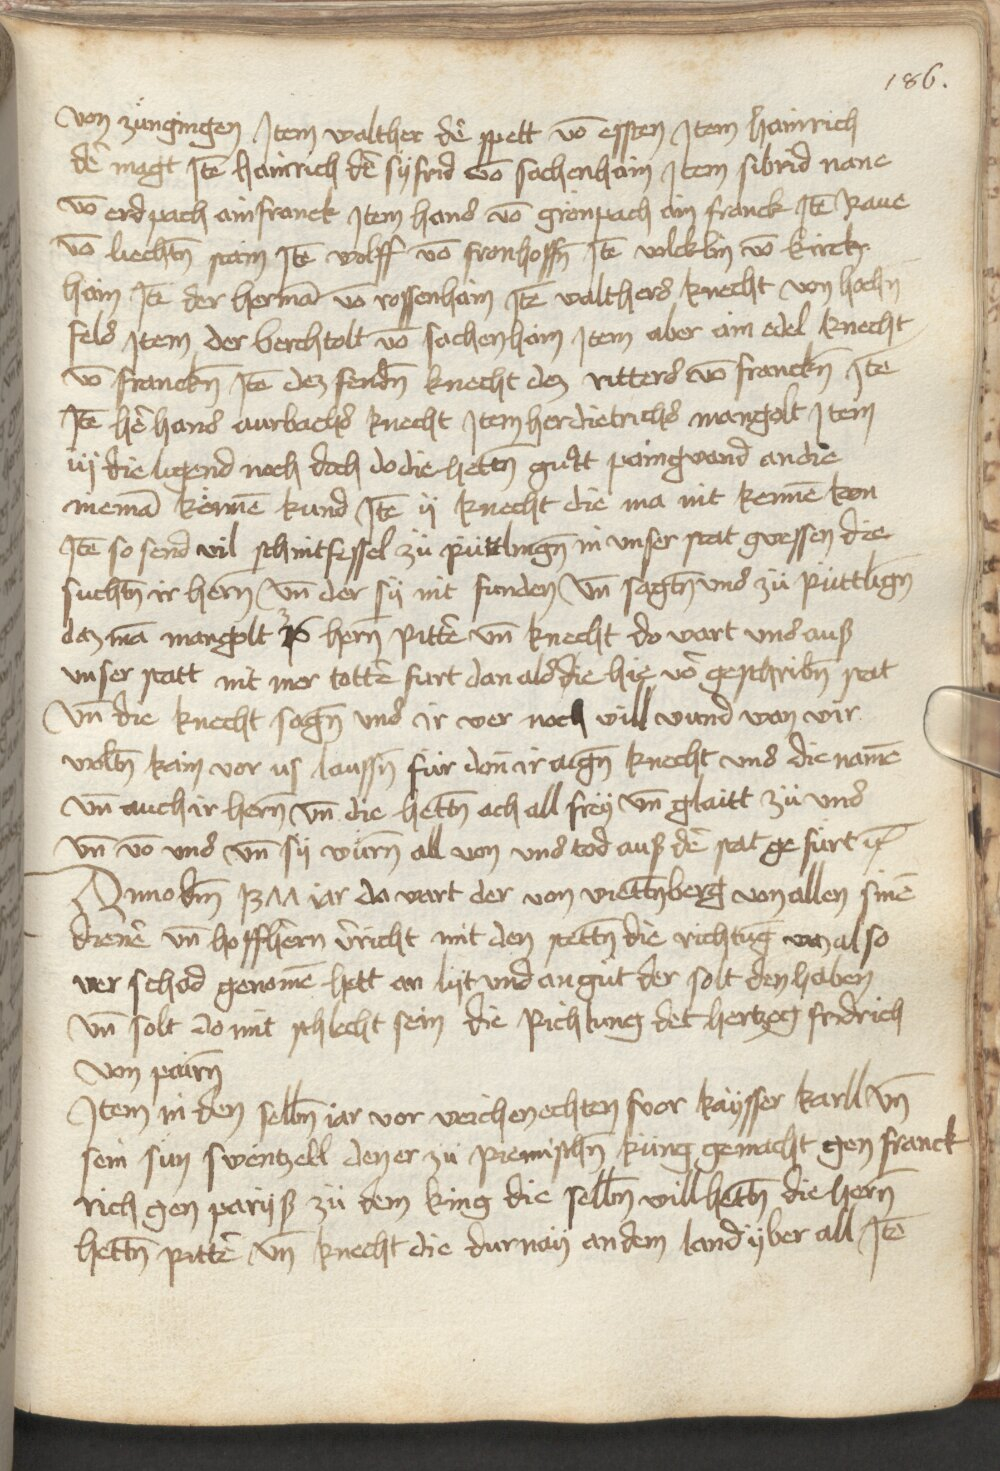 186.
von zúngingen Jtem walther dˢ spett vō essten Jtem hainrich
dˢ magt Jtē hainrich dˢ syfrid vō sachenhain Jtem sibrid nanc
vō erdpach ain franck Jtem hans vō gronpach ain franck Jtē kaue
vō liechtn̄ stain Jtē wolff vō fronhoffn̄ Jtē vlcklin vō kirch
hain Jtē der hermā vō rossenhain Jtē walthers knecht von hochn̄
fels Jtem der berchtolt vō sachenhain Jtem aber ain edel knecht
vō franckn̄ Jtē dez fendn̄ knecht dez ritters vō franckn̄ Jtē
Jtē hˢ hans aurbachs knecht Jtem her dietrichs mangolt Jtem
iij die ligend noch doch do die hettn̄ gutt paingwand an die
niemā kennē kund Jtē ij knecht die ma nit kennē kon
Jtē so send vil schiltfessel zü rütlingn̄ in vnser stat gwessen die
suchtn̄ ir hern̄ vn̄ der sy nit funden vn̄ sagtn̄ vns zü rüttlign̄
daz mā mangolt hern̄ rittˢ vn̄ knecht do wart vns auß
vnser statt nit mer tottˢ furt dan als die hie vor geschribn̄ stat
vn̄ die knecht sagn̄ vns ir wer noch vill wund wan wir
woltn̄ kain vor us laussn̄ fúr den ir aign̄ knecht vns die namē
vn̄ auch ir hern̄ vn̄ die hettn̄ ach all frey vn̄ glaitt zü vns
vn̄ vō vns vn̄ sy wurn̄ all von vns tod auß dˢ stat ge furt
Anno dm̄ 1377 jar da wart der von wirttn̄berg von allen sinē
dienˢ vn̄ hoffhern vˢricht mit den stettn̄ die richtung waz also
wer schad genomē hett an lyt vnd an gut der solt den haben
vn̄ solt do mit schlecht sein die Richtung det hertzog fridrich
von pairn̄
Jtem in den selbn̄ jar vor weichenechten fuor kaysser karll vn̄
sein sün swentzell den er zü Remischn̄ küng gemacht gen franck
rich gen paryß zü dem king die selbn̄ will hettn̄ die hern̄
hettn̄ rittˢ vn̄ knecht die durnay an dem land yber all Jtē